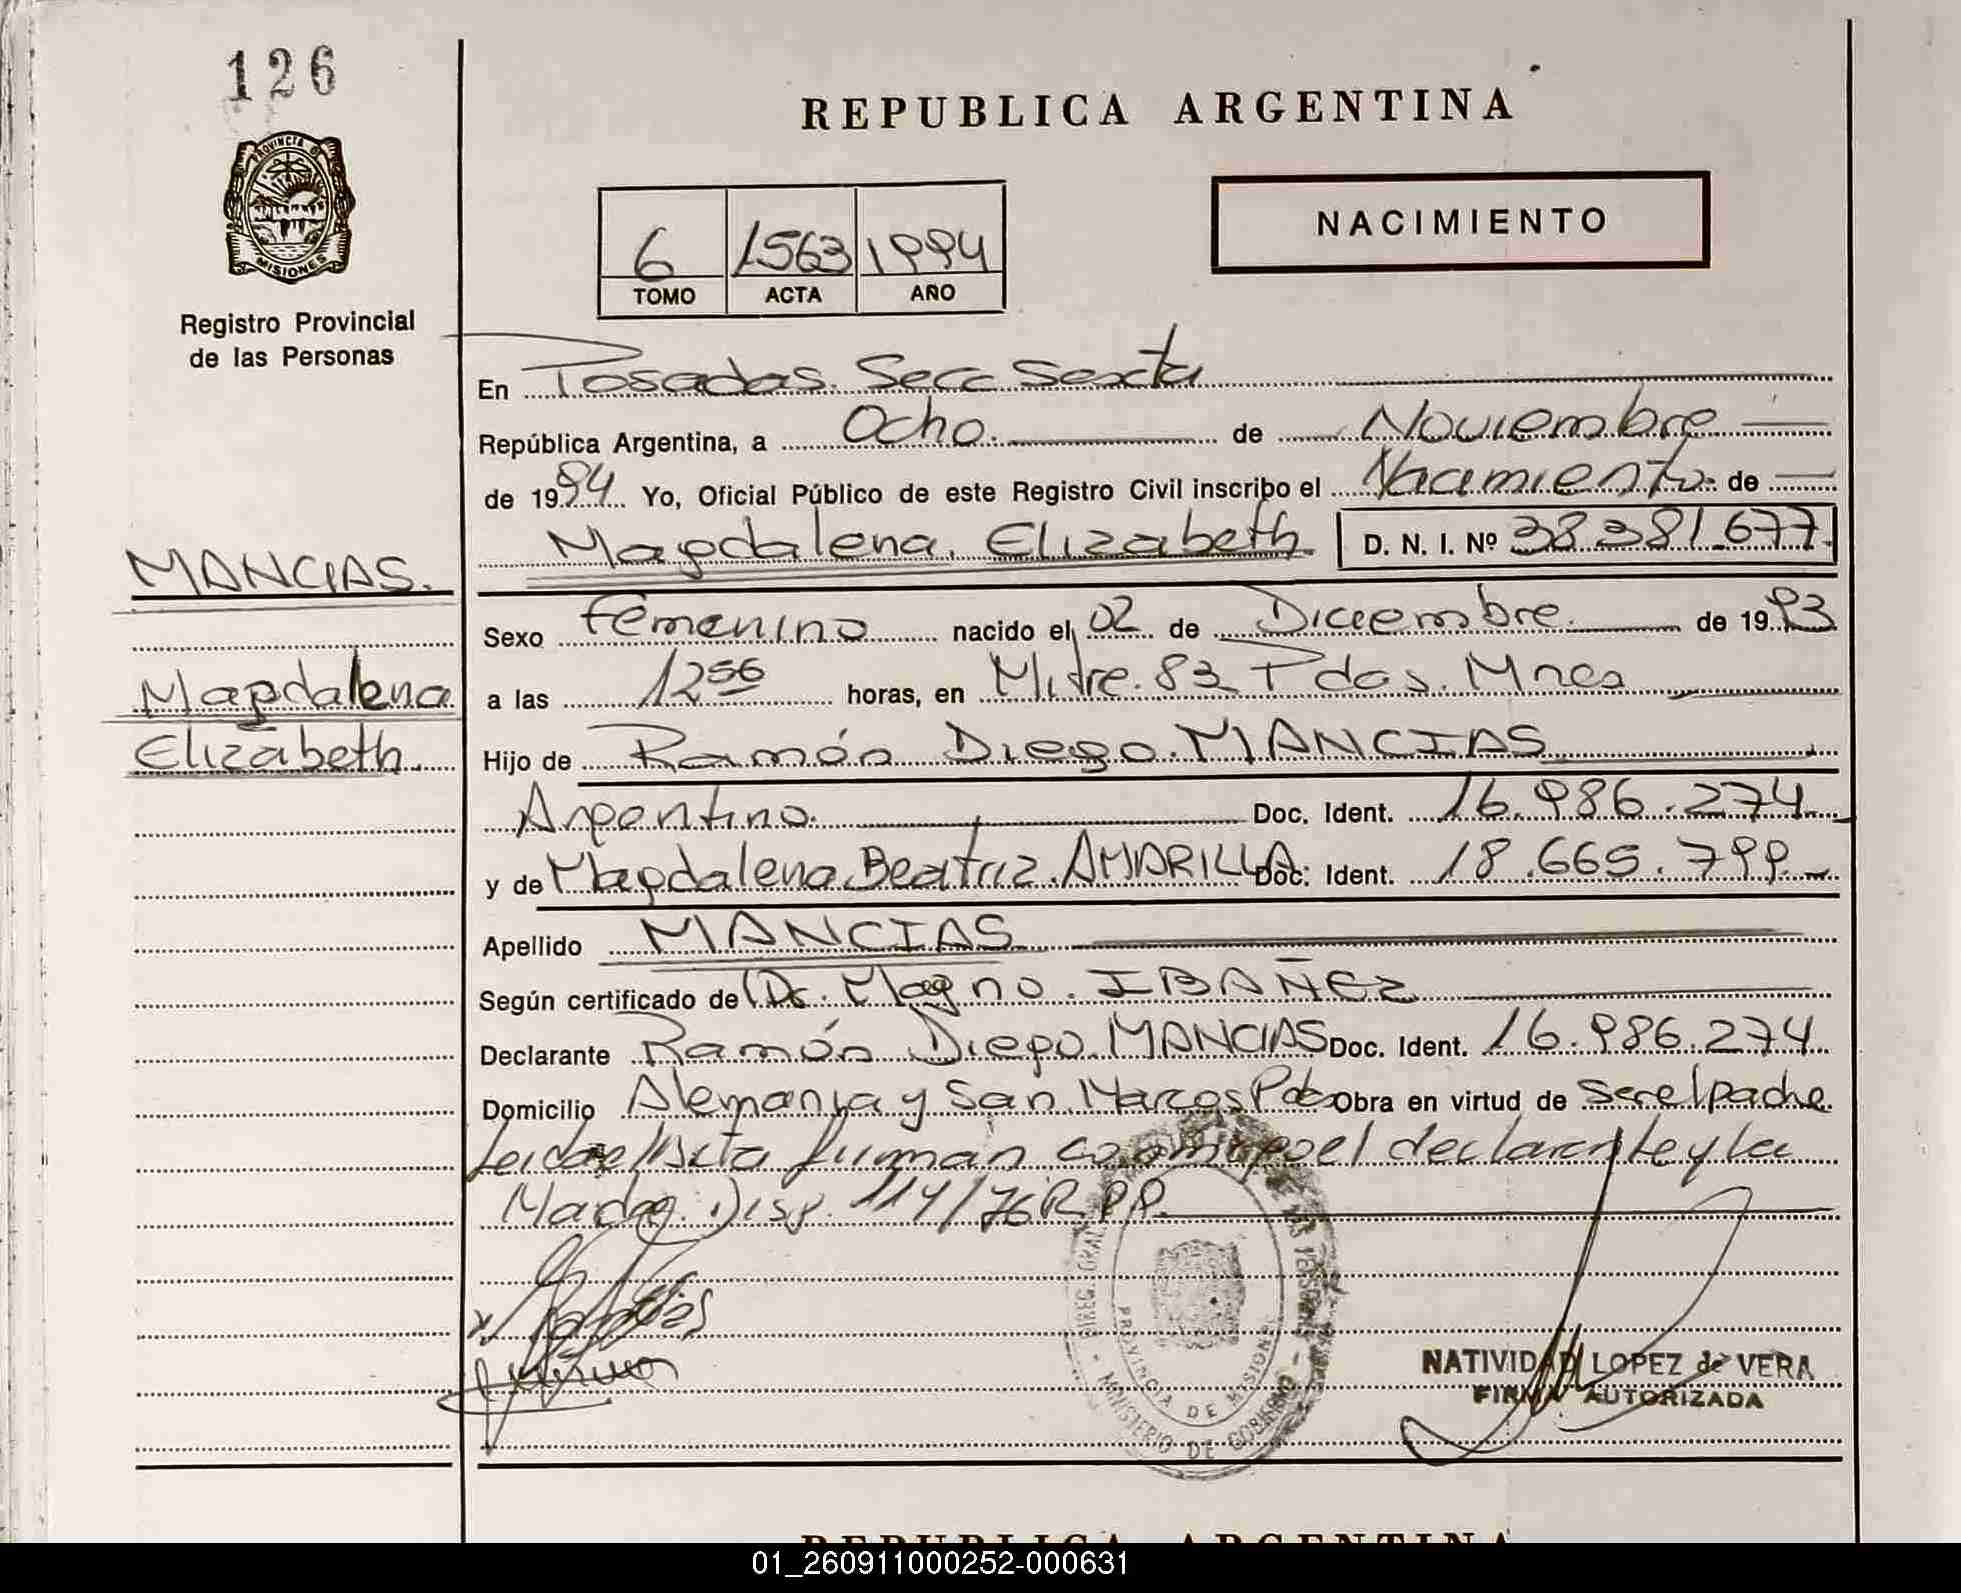 126
REPUBLICA ARGENTINA
PROVINCIA DE
MISIONES
Registro Provincial
de las Personas
6 1563 1994
TOMO ACTA AÑO
NACIMIENTO
En Posadas. Secc Sexta
República Argentina, a Ocho. de Noviembre
de 1994 Yo, Oficial Público de este Registro Civil inscribo el Nacimiento de
Magdalena Elizabeth D. N. I. Nº 38381677
MANCIAS.
Magdalena
Elizabeth.
Sexo Femenino nacido el 02 de Diciembre. de 1993
a las 12 56 horas, en Mitre. 83 Pdas. Mnes
Hijo de Ramón Diego. MANCIAS
Argentino. Doc. Ident. 16.986.274
y de Magdalena Beatriz. AMARILLA Doc. Ident. 18.665.799
Apellido MANCIAS
Según certificado de Dr. Magno. IBAÑEZ
Declarante Ramón Diego. MANCIAS Doc. Ident. 16.986.274
Domicilio Alemania y San Marcos Pdas Obra en virtud de ser el padre
Leida el Acta firman conmigo el declarante y la
Madre. Disp. 114/76 R.P.P.
PROVINCIA DE MISIONES
MINISTERIO DE GOBIERNO
NATIVIDAD LOPEZ de VERA
FIRMA AUTORIZADA
REPUBLICA ARGENTINA
01_260911000252-000631